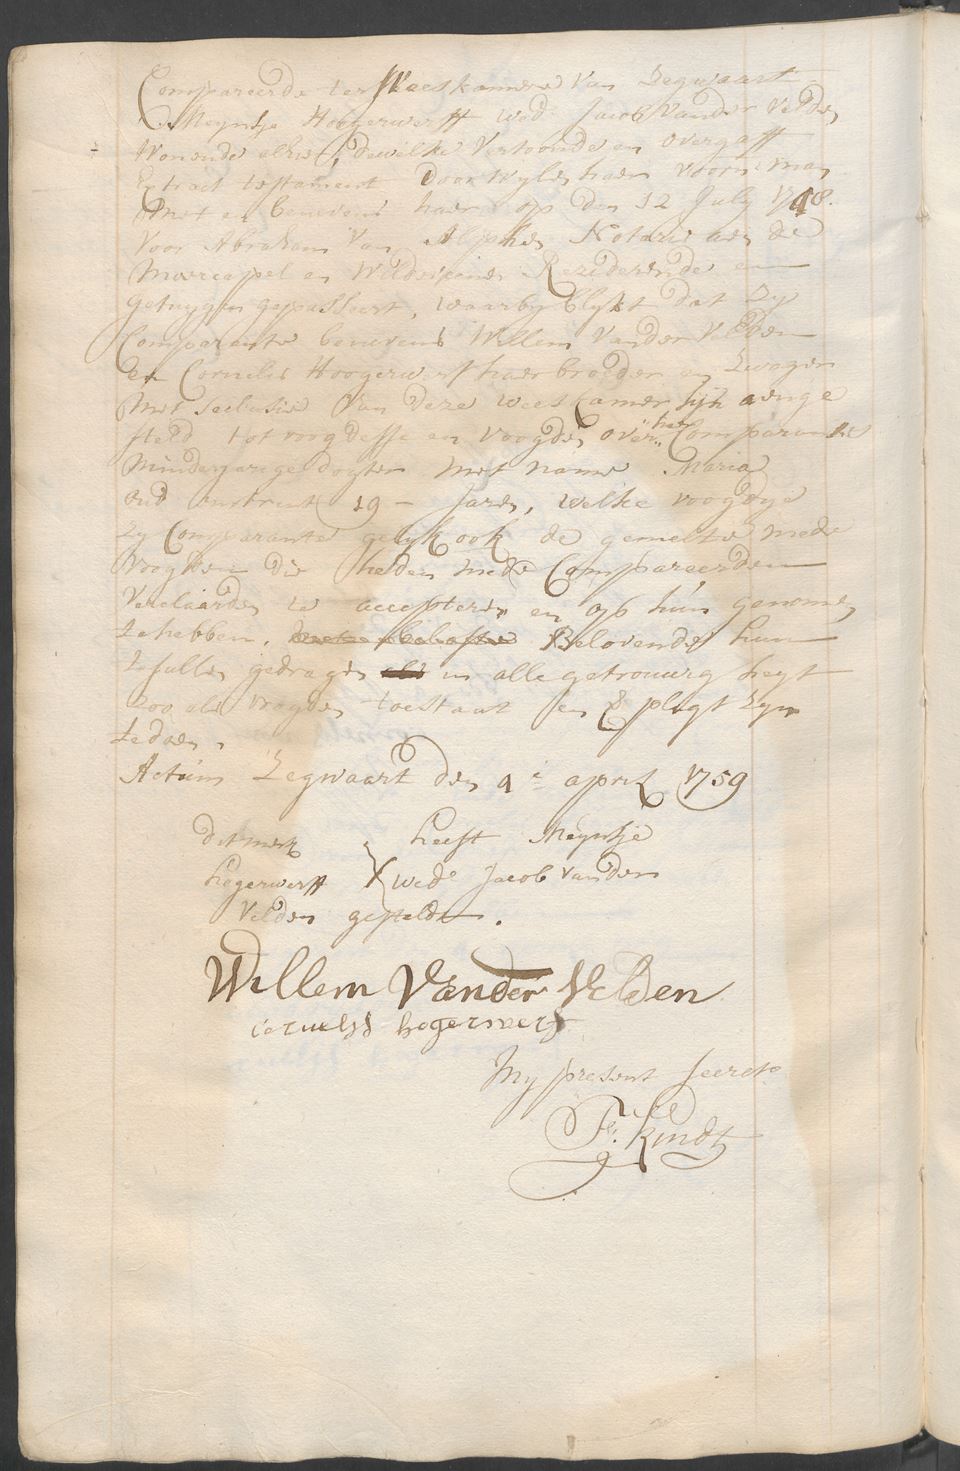 Compareerde ter Weeskamere van Zegwaart
Meyntje Hoogerwerff wed Jacob Vander Velden
Wonende alhier, dewelke Vertoonde en overgaff
Extract testament door Wylen haer voorn: man
Met en benevens haer op den 12 July 1748.
Voor Abraham Van Alphen Notaris aen de
Moercappel en Wildevenen Rezideerende en
getuygen gepasseert, waarby blykt dat Zy
Comparante benevens Willem Vander Velden
en Cornelis Hoogerwerf haer broeder en Zwager
Met seclusie Van deze weescamer sijn aenge
steld tot voogdesse en voogden over haer Comparante
Minderjarige dogter met name Maria
oud omtrent 19 - Jaren, welke voogdye
Zy Comparante gelyk ook de gemelte mede
Voogden die heden mede Compareerden
Verclaarden te accepteren en op hun genomen
te hebben. Belovende hun
te sullen gedragen in alle getrouwigheyt
zoo als Vrogden toestaat en & pligt zyn
te doen.
Actum Zegwaart den 9e april 1759
dit merk heeft Meyntje
hogerwerff X wede Jacob vander
Velden gesteldt.
Willem Vander Velden
cornelis hogerwerf
My present secrets
F: Kindt